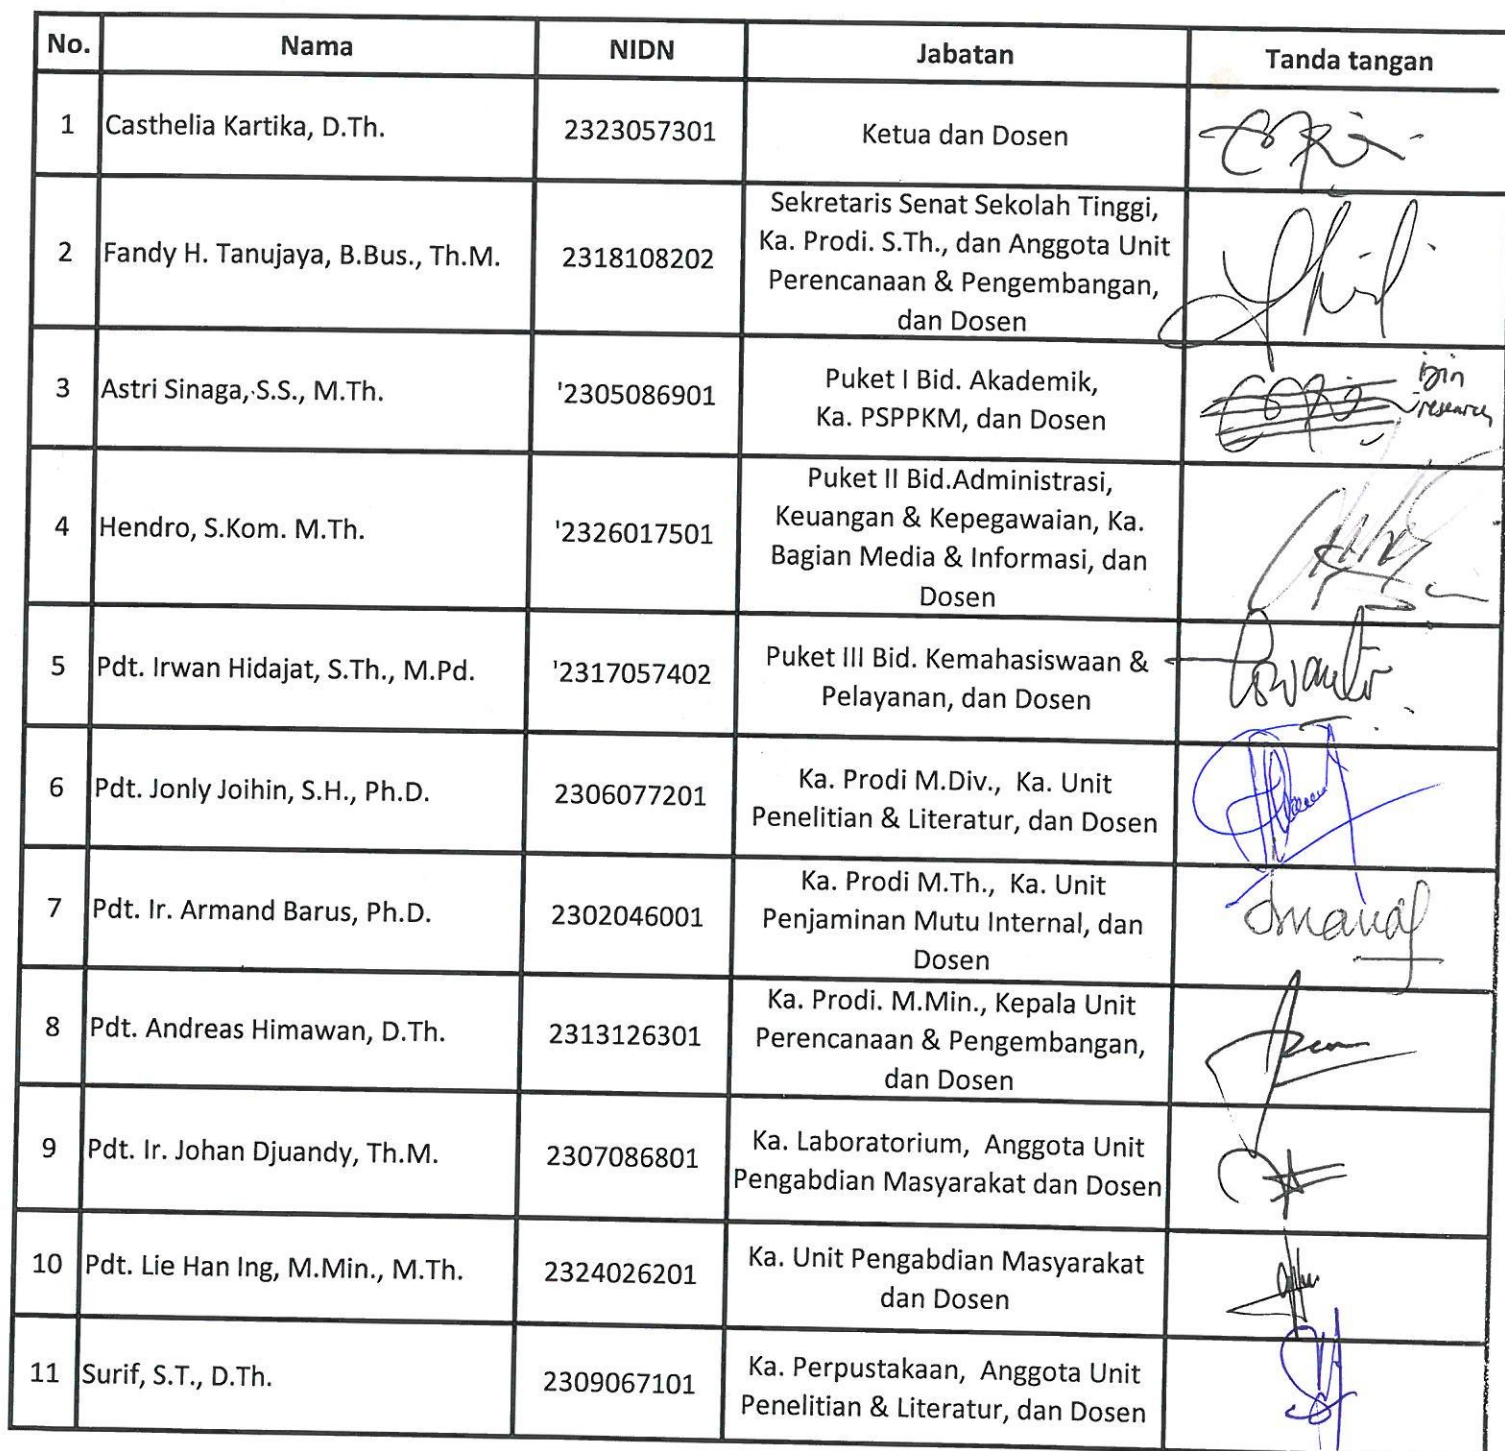 No. Nama NIDN Jabatan Tanda tangan
1 Casthelia Kartika, D.Th. 2323057301 Ketua dan Dosen
2 Fandy H. Tanujaya, B.Bus., Th.M. 2318108202 Sekretaris Senat Sekolah Tinggi,
Ka. Prodi. S.Th., dan Anggota Unit
Perencanaan & Pengembangan,
dan Dosen
3 Astri Sinaga, S.S., M.Th. '2305086901 Puket I Bid. Akademik,
Ka. PSPPKM, dan Dosen
izin
research
4 Hendro, S.Kom. M.Th. '2326017501 Puket II Bid.Administrasi,
Keuangan & Kepegawaian, Ka.
Bagian Media & Informasi, dan
Dosen
5 Pdt. Irwan Hidajat, S.Th., M.Pd. '2317057402 Puket III Bid. Kemahasiswaan &
Pelayanan, dan Dosen
6 Pdt. Jonly Joihin, S.H., Ph.D. 2306077201 Ka. Prodi M.Div., Ka. Unit
Penelitian & Literatur, dan Dosen
7 Pdt. Ir. Armand Barus, Ph.D. 2302046001 Ka. Prodi M.Th., Ka. Unit
Penjaminan Mutu Internal, dan
Dosen
8 Pdt. Andreas Himawan, D.Th. 2313126301 Ka. Prodi. M.Min., Kepala Unit
Perencanaan & Pengembangan,
dan Dosen
9 Pdt. Ir. Johan Djuandy, Th.M. 2307086801 Ka. Laboratorium, Anggota Unit
Pengabdian Masyarakat dan Dosen
10 Pdt. Lie Han Ing, M.Min., M.Th. 2324026201 Ka. Unit Pengabdian Masyarakat
dan Dosen
11 Surif, S.T., D.Th. 2309067101 Ka. Perpustakaan, Anggota Unit
Penelitian & Literatur, dan Dosen